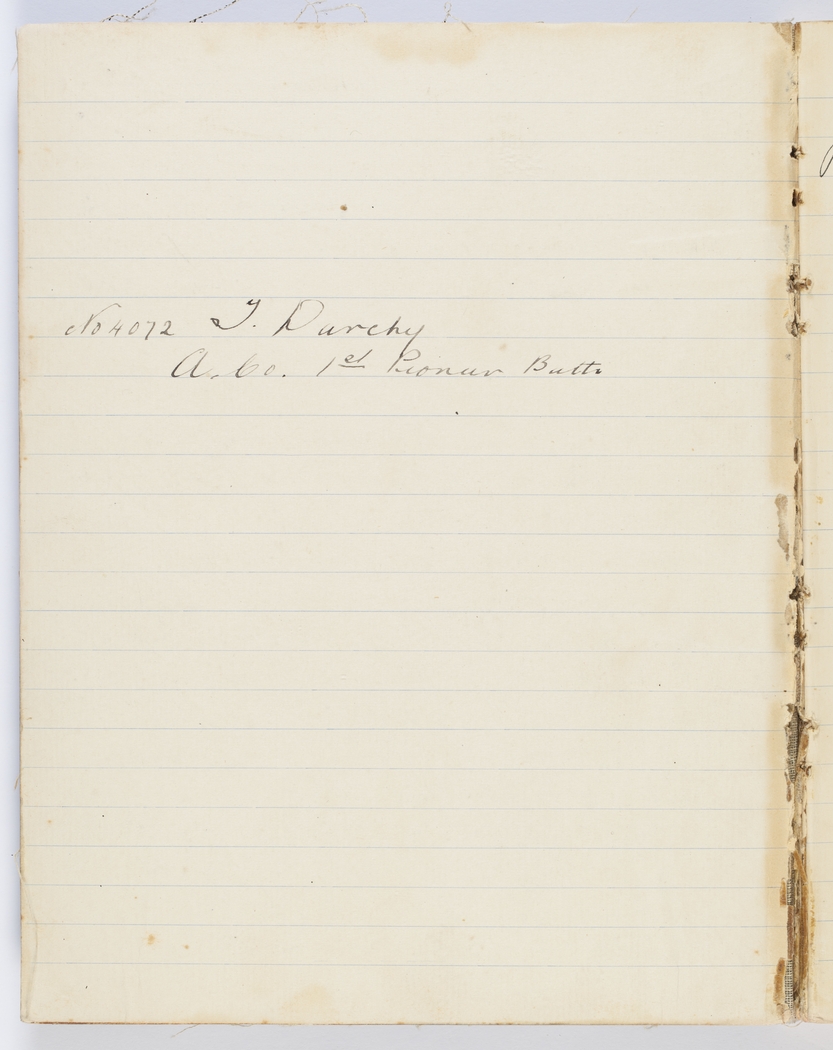 No 4072 T. Darchy
A. Co. 1st Pioneer Batt.